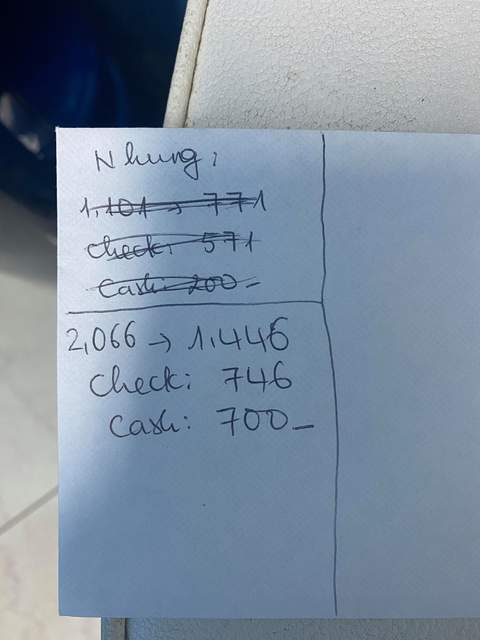 Nhung:
1,101 → 771
Check: 571
Cash: 200-
2,066 → 1,446
Check: 746
Cash: 700-